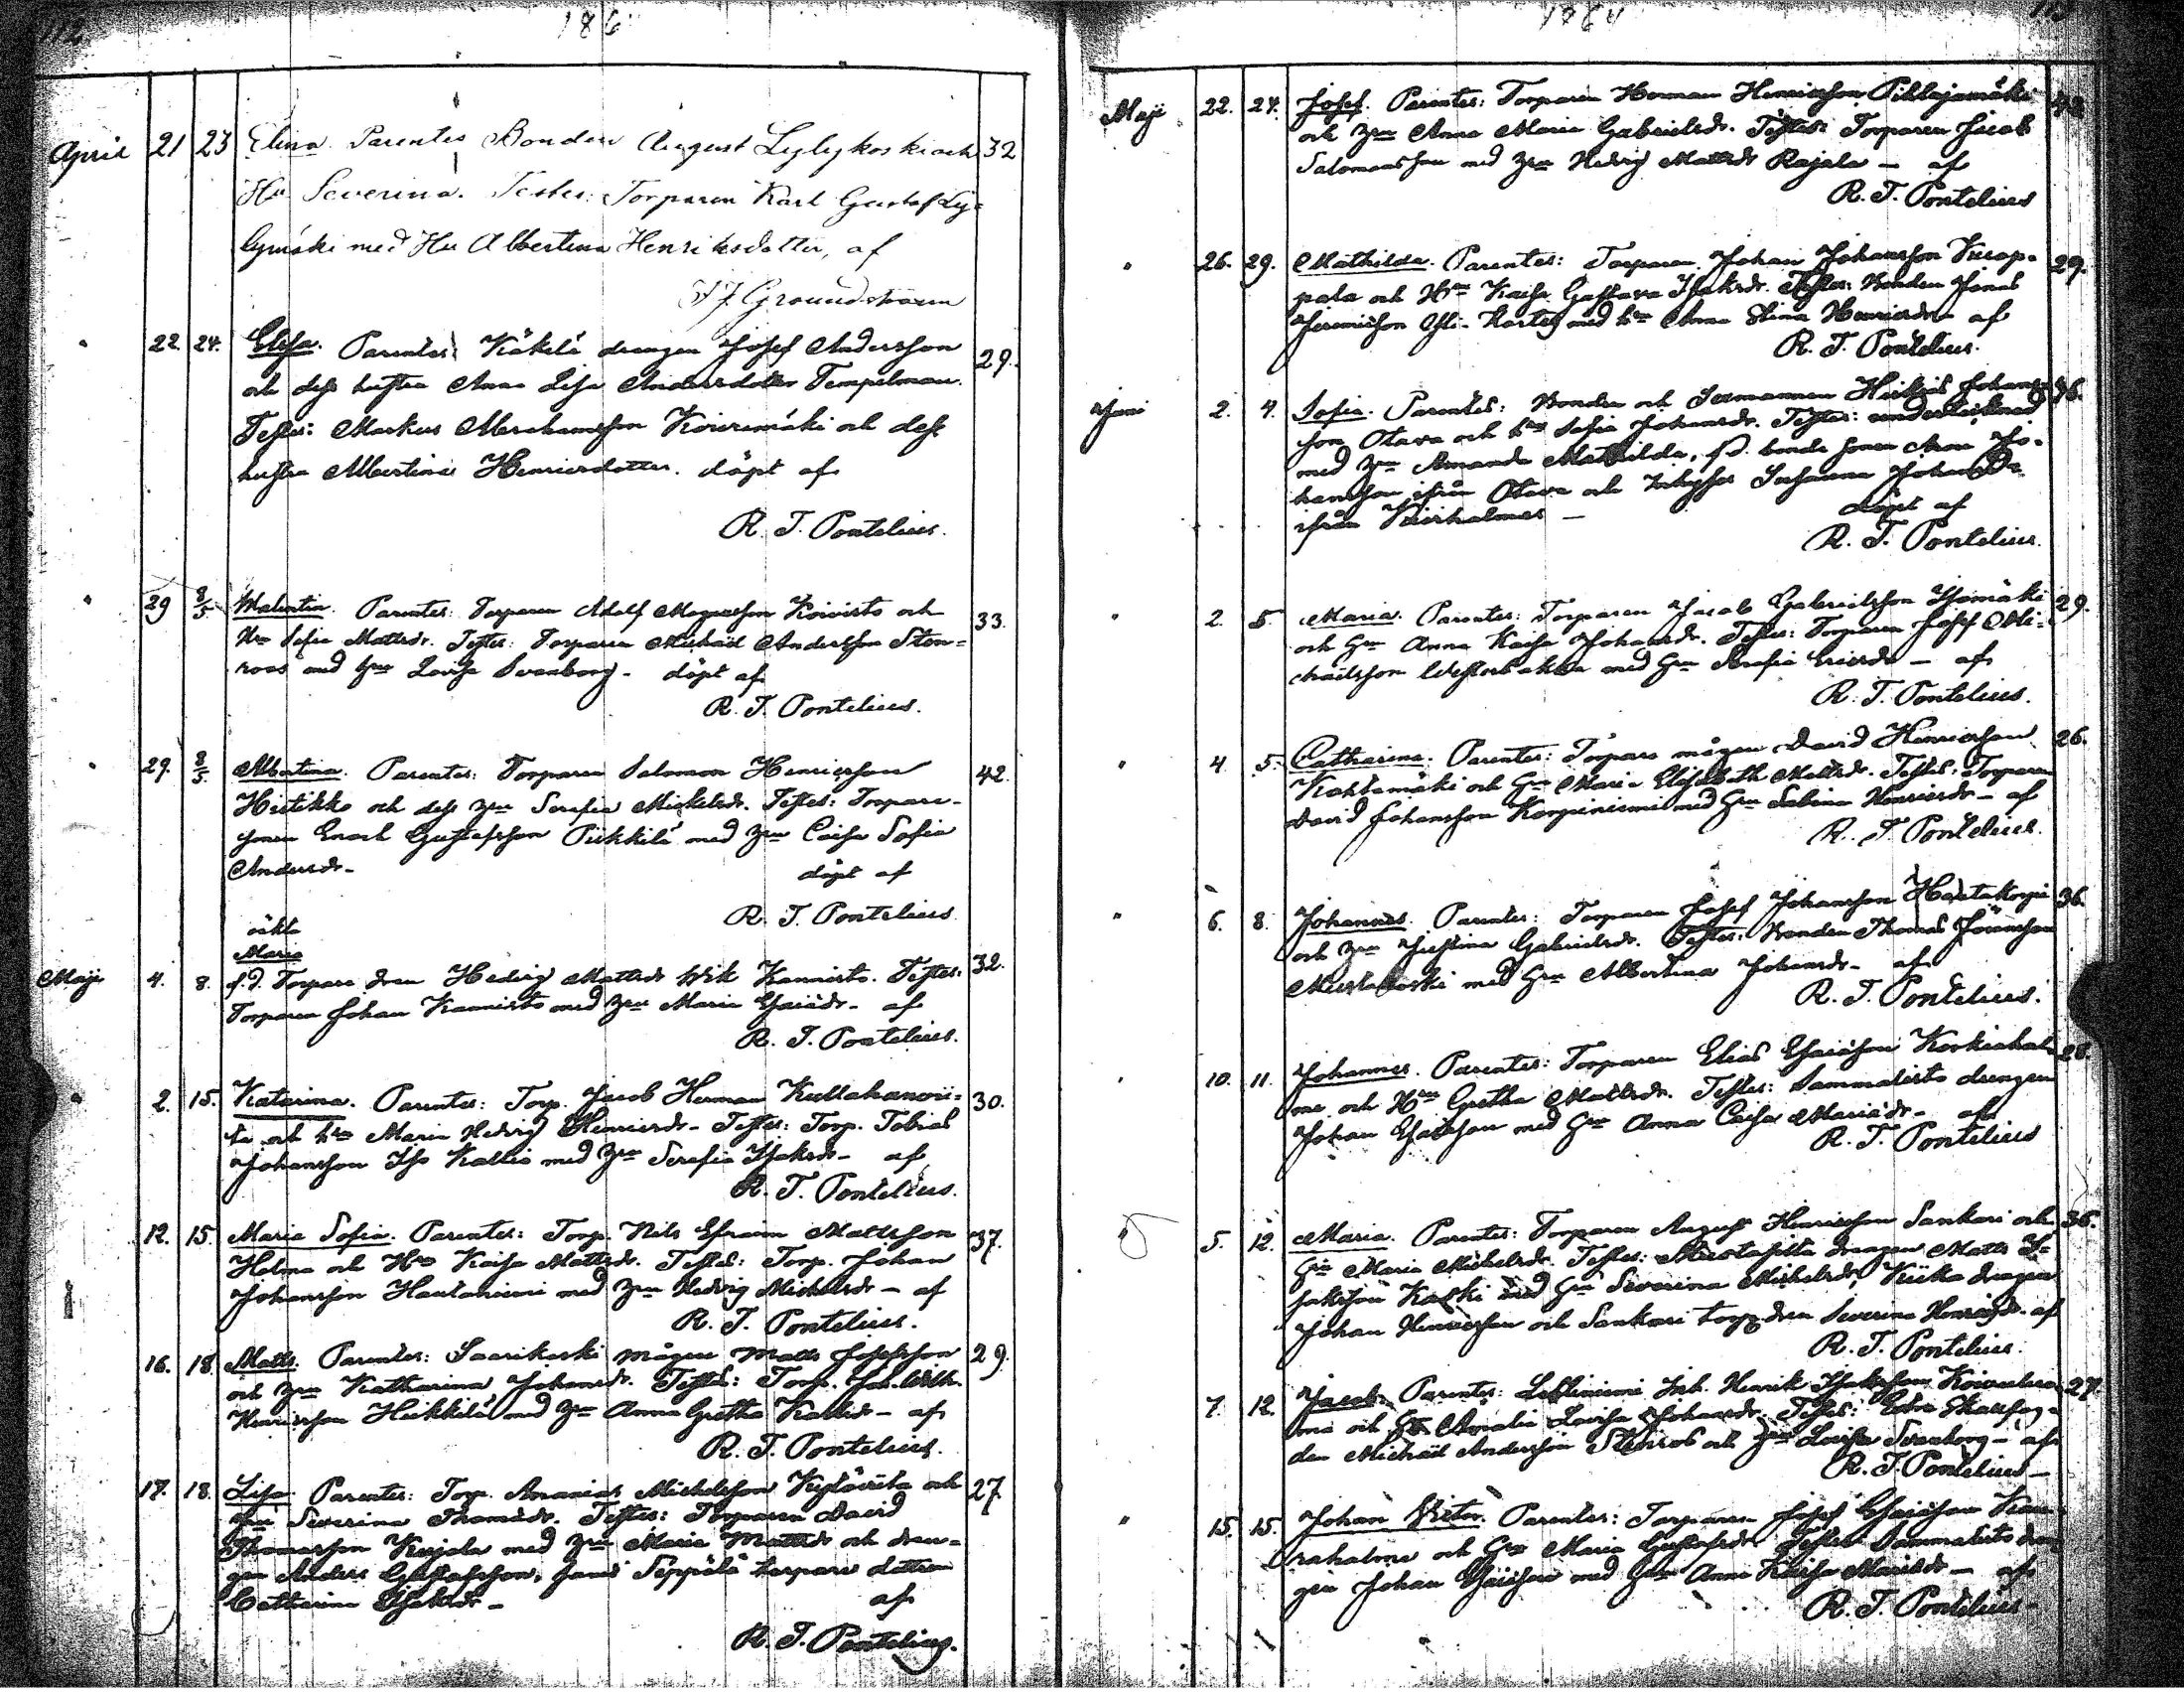 112.
186
April 21 23 Elina. Parentes Bonden August Lylykoski och 32
Hu Severina. Testes: Torparen Karl Gustaf Ly=
lymäki med Hu Albertina Henriksdotter, af
Groundstroem
" 22. 24. Elisa. Parentes: Käkelä drengen Josef Andersson 29.
och dess hustru Anna Lisa Andersdotter Tempelman.
Testes: Markus Abrahamsson Kouremäki och dess
hustru Albertina Henricsdotter. döpt af
R. T. Pontelius.
" 29 8/5 Malentin. Parentes: Torparen Adolf Magnusson Koivisto och 33.
Hru Sofia Mattsdr. Testes: Torparen Michäel Andersson Sten=
roos med hru Lovisa Svanborg - döpt af
R. T. Pontelius.
" 29. 8/5 Albertina. Parentes: Torparen Salomon Henricsson 42.
Hietikko och dess hru Serafia Michelsdr. Testes: Torpare-
sonen Enoch Gustafsson Pükkilä med hru Caisa Sofia
Andersdr- döpt af
R. T. Pontelius
oäkta
Maria
Maji 4. 8. s.d. Torpare dren Hedvig Mattsdr Wik Kannisto. Testes: 32.
Torparen Johan Kannisto med hru Maria Esaiädr- af
R. T. Pontelius.
" 2. 15. Katarina. Parentes: Torp. Jacob Herman Kullahanvii= 30.
ta och hru Maria Hedvig Henricsdr- Testes: Torp. Tobias
Johansson Iso Kallio med hru Serafia Isaksdr- af
R. T. Pontelius.
12. 15. Maria Sofia. Parentes: Torp. Nils Efraim Mattsson 37.
Helma och Hru Kaisa Mattsdr. Testes: Torp. Johan
Johansson Hautaniemi med hru Hedvig Michelsdr - af
R. T. Pontelius.
16. 18. Matts. Parentes: Saarikoski mågen Matts Josefsson 29.
och hru Katharina Johansdr. Testes: Torp. Joh. Wilh.
Henricsson Heikkilä med hru Anna Gretha Karlsdr - af
R. T. Pontelius.
17. 18. Lisa. Parentes: Torp. Ananias Michelsson Kytöviita och 27.
hru Severina Thomädr. Testes: Torparen David
Thomasson Kujala med hru Maria Mattsdr och dren=
gen Anders Gustafsson, Seppälä torpare dottren
Catharina Isaksdr - af
R. T. Pontelius.
1864
113
Maji 22. 24. Josef. Parentes: Torparen Herman Henricsson Pihlajamäki 42
och hru Anna Maria Gabrielsdr. Testes: Torparen Jacob
Salomonsson med hru Hedvig Mattsdr Rajala - af
R. T. Pontelius
" 26. 29. Mathilda. Parentes: Torparen Johan Johansson Kuop= 29.
pala och Hru Kaisa Gustava Isaksdr. Testes: Bonden Jonas
Jeremiesson Yli-Kortes med hru Anna Stina Henricsdr - af
R. T. Pontelius.
Juni 2. 4. Sofia. Parentes: Bonden och Sexmannen Heikis Johans= 36.
son Otava och hru Sofia Johansdr. Testes: undertecknad
med hru Amanda Mathilda, s.d. bonde sonen Aron Jo=
hansson ifrån Otava och Susanna Johansdr
ifrån - döpt af
R. T. Pontelius.
" 2. 5. Maria. Parentes: Torparen Jacob Gabrielsson Isomäki 29.
och Hru Anna Kaisa Johansdr. Testes: Torparen Josef Mi=
chäelsson Westerbakka med Hru Serafia Ericsdr - af
R. T. Pontelius.
" 4. 5. Catharina. Parentes: Torpare mågen David Henricsson 26.
Kohtamäki och Hru Maria Elisabeth Mattsdr. Testes: Torparen
David Johansson Korpiniemi med Hru Sabina Henricsdr - af
R. T. Pontelius.
" 6. 8. Johannes. Parentes: Torparen Josef Johansson Hautakorpi 36.
och hru Justina Gabrielsdr. Testes: Bonden Thomas Jöransson
Mustakoski med Hru Albertina Johansdr- af
R. T. Pontelius.
" 10. 11. Johannes. Parentes: Torparen Elias Esaiässon Korkiahol= 28.
me och Hru Gretha Mattsdr. Testes: Sammalisto drengen
Johan Esaiässon med Hru Anna Caisa Mariädr - af
R. T. Pontelius
" 5. 12. Maria. Parentes: Torparen August Henricsson Sankari och 36.
Hru Maria Michelsdr. Testes: drengen Matts I=
saksson Kaski med Hru Severina Michelsdr, Kiikka drengen
Johan Henricsson och Sankari torp. dren Severina Henricsdr. af
R. T. Pontelius.
7. 12. Jacob. Parentes: Lehtiniemi Inh. Henrik Isaksson Koivuluo= 27.
ma och Hru Amalia Lovisa Johansdr. Testes: Extra
den Michäel Andersson Stenroos och hru Lovisa Svanborg - af
R. T. Pontelius -
" 15. 15. Johan Victor. Parentes: Torparen Josef Esaiässon
raholme och Hru Maria Gustafsdr. Testes: Sammalisto dren=
gen Johan Esaiässon med Hru Anna Kaisa Mariädr - af
R. T. Pontelius -